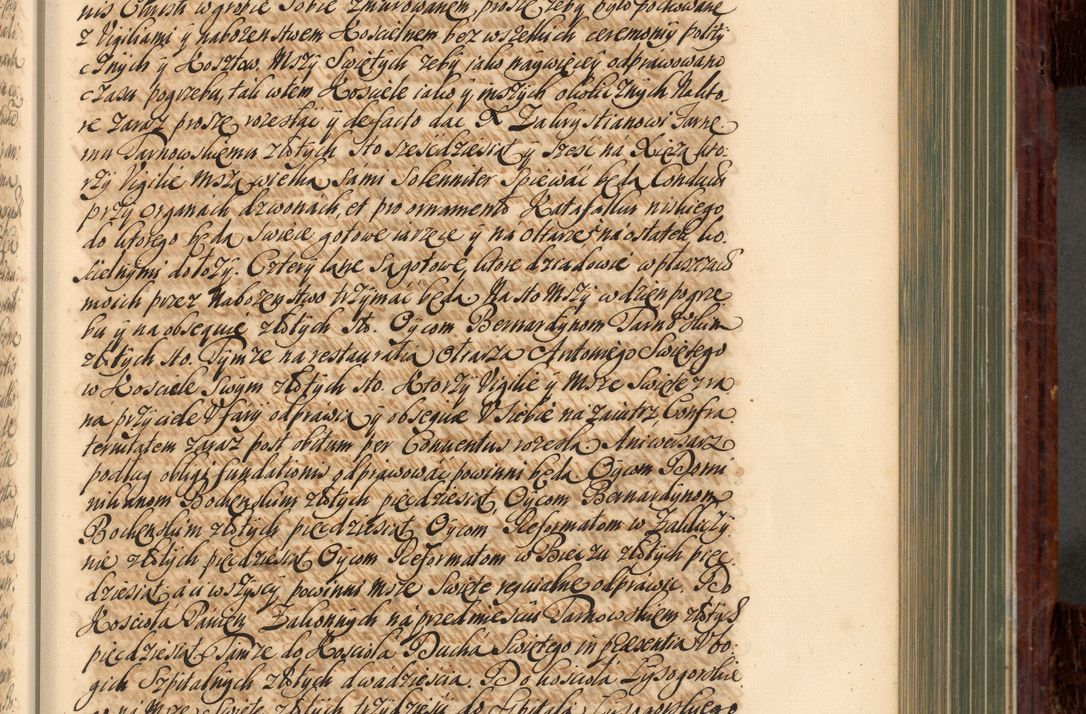 nis Christi w grobie sobie zmurowanem, proszę żeby było pochowane
z Vigiliami y nabożenstwem Koscielnem bez wszelkich ceremony polity
cżnych y Kosztow. Mszy Swiętych żeby iako naywięcey odprawowano
czasu pogrzebu, tak w tem Kosciele iako y inszych okolicżnych Kąkto
re zaraz proszę rozesłać y de facto dac X Zakrystianowi Farne
mu Tarnowskiemu złotych sto szescdziesiąt y szesc na Xięża kto
rży Vigilie Mszą wielką sami Solenniter spiewac będą Conduct
przy organach dzwonach, et pro ornamento Katafalku niskiego
do ktorego będą swiece gotowe iarzęce y na Ołtarze na ostatek, ko
scielnymi dołoży. Cztery łane są gotowe, ktore dziadowie w płaszczach
moich przez Nabożenstwo trzymać będą Na sto Mszy w dzien pogrze
bu y na obsequie złotych sto. Oycom Bernardynom Tarnowskim
złotych sto. Tymże na restauratią Ołtarza Antoniego Swiętego
w Kosciele swym złotych sto. Ktorzy Vigilie y Msze Swięte zra
na przy ciele V Fary odprawią y obsequie V siebie na zaiutrz Confra
ternitatem zaraz post obitum per Conventus rozeslą Aniwersarz
podług obligi fundationis odprawować powinni będą Oycom Domi
nikanom Bochenskim złotych pięcdziesiąt, Oycom Bernardynom
Bochenskim złotych pięcdziesiąt, Oycom Reformatom w Zakliczy
nie złotych pięcdziesiąt Oycom Reformatom w Bieczu złotych pięc
dziesiąt a ci wszyscy powinni Msze Swięte requialne odprawić. Do
Koscioła Panien Zakonnych na przedmiesciu Tarnowskiem złotych
pięcdziesiąt Tamże do Koscioła Ducha Swiętego in praesentia Vbo
gich Szpitalnych złotych dwadziescia. Do koscioła Łysogorskie
go na Msze Swięte złotych trzydziesci do szpitala Łysogorskiego